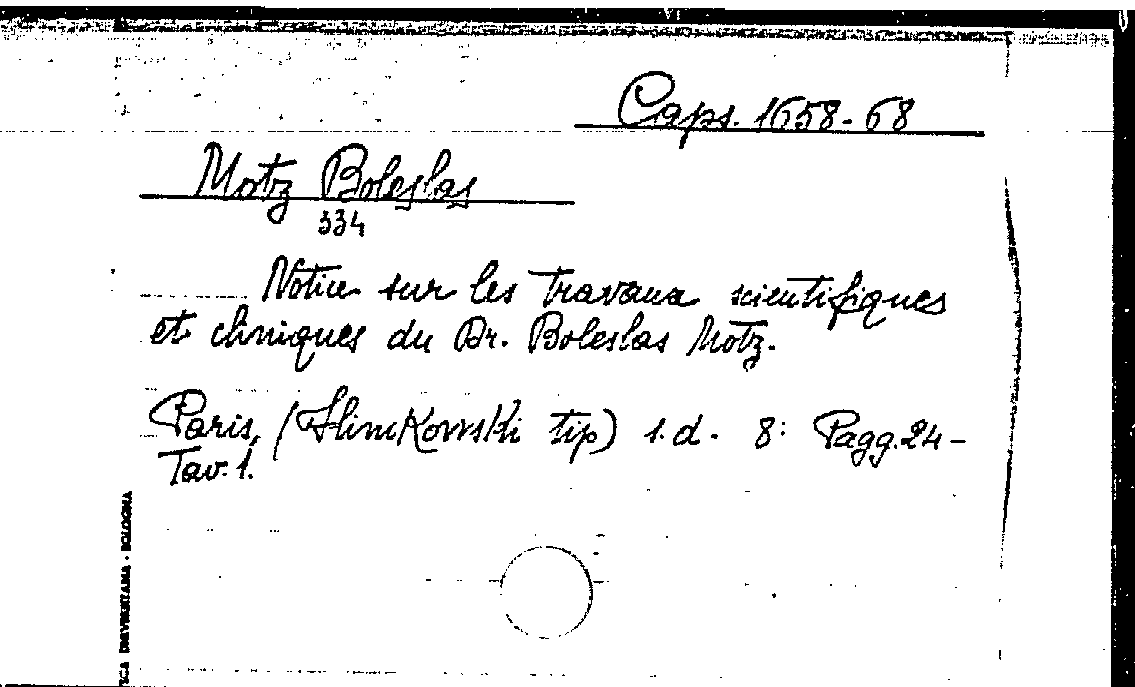 Caps. 1658-68
Motz Boleslas
334
Notice sur les travaux scientifiques
et cliniques du Dr. Boleslas Motz.
Paris, (SlimKowski tip) s.d. 8: Pagg. 24-
Tav. 1.
CA UNIVERSITARIA - BOLOGNA